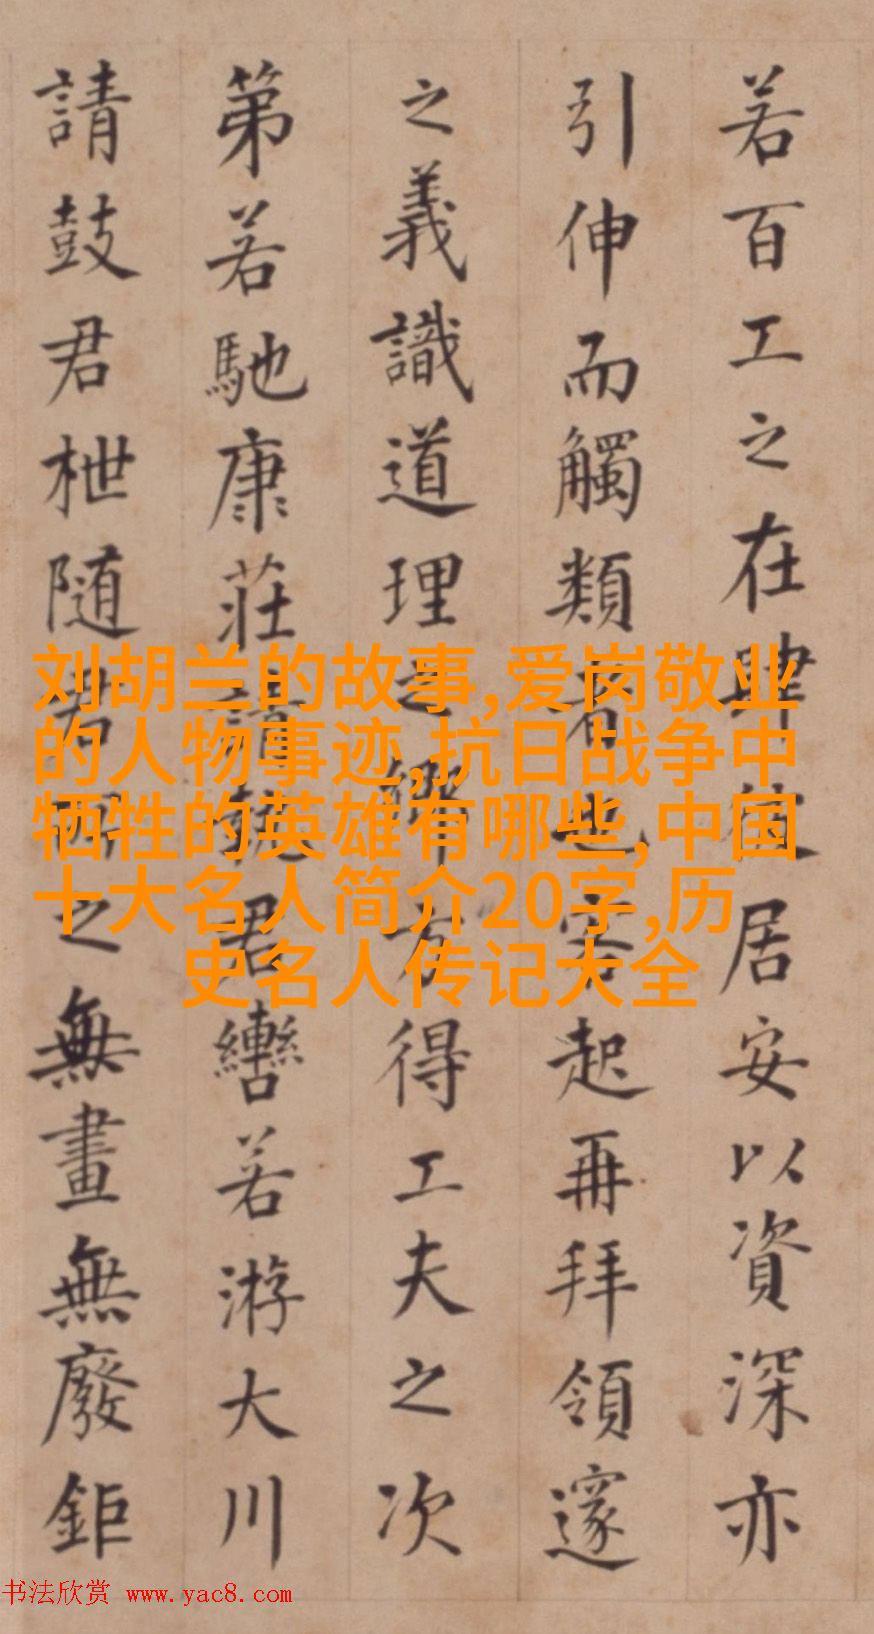 若百工之在肆便居安以資深亦
引伸而觸類若也客起再拜領邃
之義識道理之鄉方得工夫之次
第若馳康莊請執君轡若游大川
請鼓君枻随君之無畫無廢鉅
刘胡兰的故事,爱岗敬业
的人物事迹,抗日战争中
牺牲的英雄有哪些,中国
十大名人简介20字,历
史名人传记大全
书法欣赏 www.yac8.com